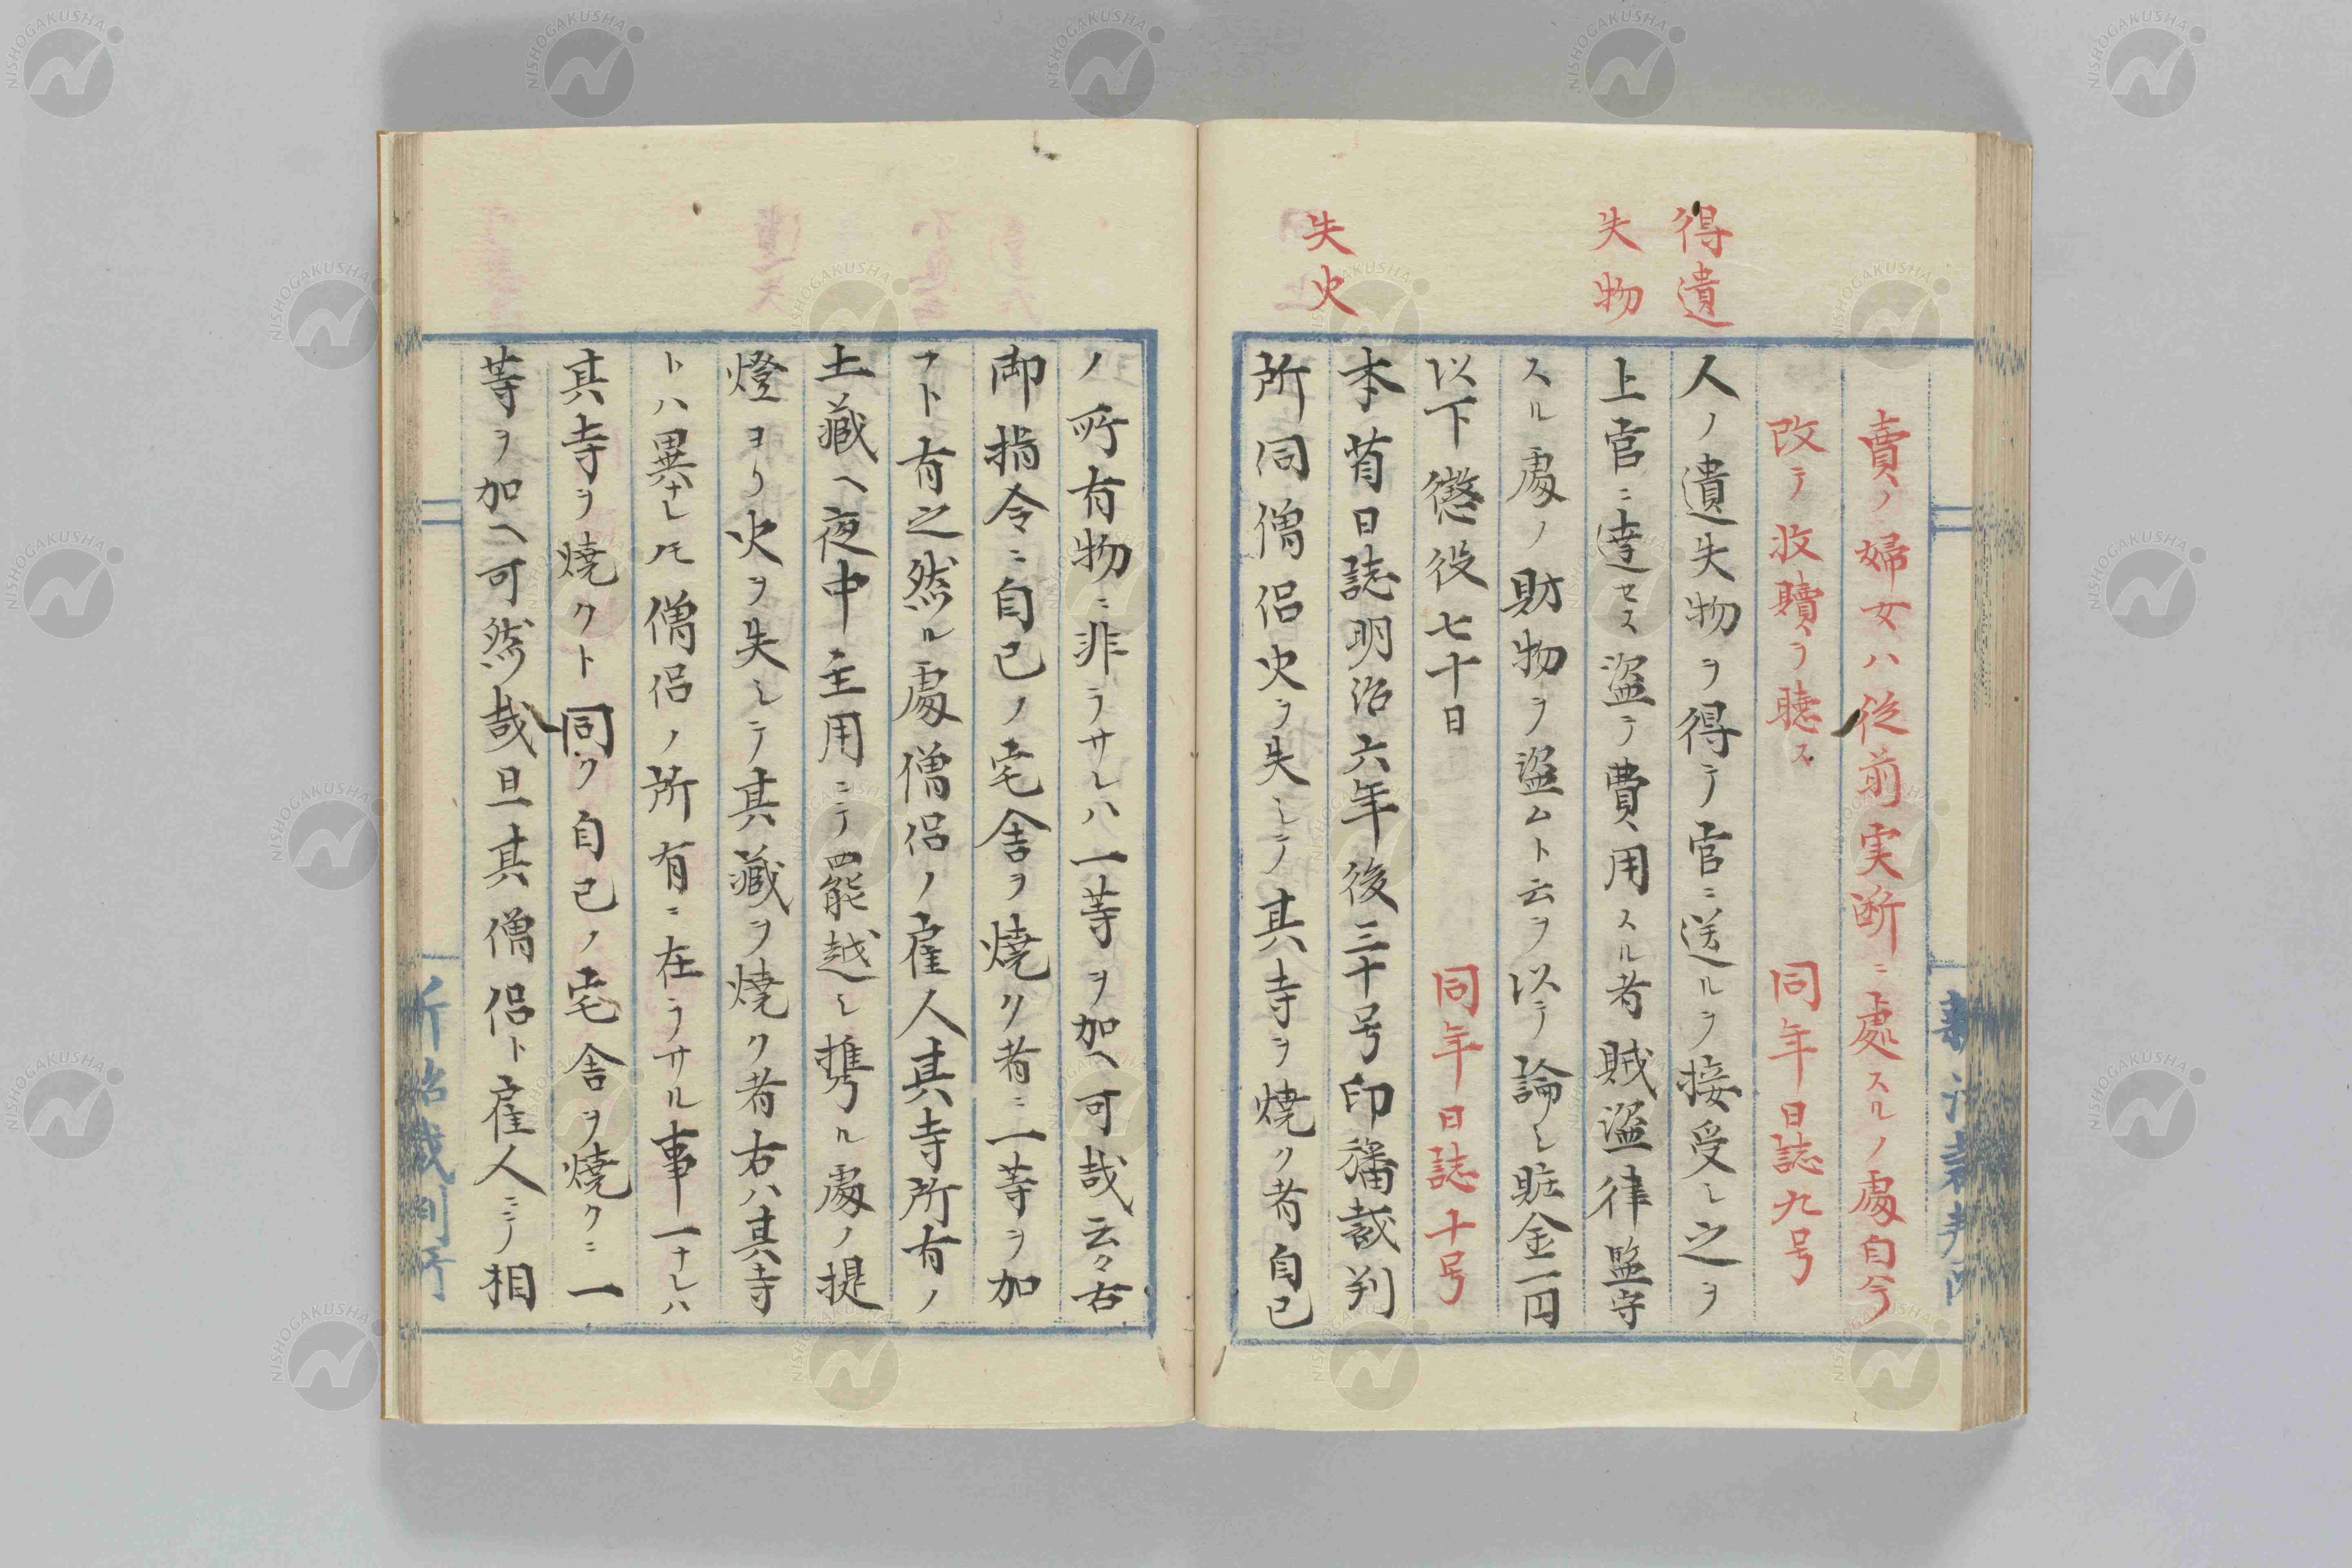 賣ノ婦女ハ從前実断ニ處スルノ處自今
改テ收贖ヲ聴ス　同年日誌九号
得遺
失物
人ノ遺失物ヲ得テ官ニ送ルヲ接受シ之ヲ
上官ニ達セス盗テ費用スル者賊盗律監守
スル處ノ財物ヲ盗ムト云ヲ以テ論シ賍金一円
以下懲役七十日　同年日誌十号
失火
本省日誌明治六年後三十号印旛裁判
所同僧侶火ヲ失シテ其寺ヲ焼ク者自己
ノ所有物ニ非ラサレハ一等ヲ加ヘ可哉云々右
御指令ニ自己ノ宅舎ヲ焼ク者ニ一等ヲ加
フト有之然ル處僧侶ノ雇人其寺所有ノ
土藏ヘ夜中主用ニテ罷越シ携ル處ノ提
燈ヨリ火ヲ失シテ其藏ヲ焼ク者右ハ其寺
トハ異ナレ𪜈僧侶ノ所有ニ在ラサル事一ナレハ
其寺ヲ焼クト同ク自己ノ宅舎ヲ焼クニ一
等ヲ加ヘ可然哉且其僧侶ト雇人ニテ相
新治裁判所
NISHOGAKUSHA